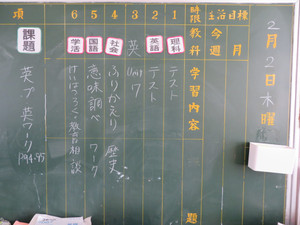 2月2日木曜
生活目標
今週
時限 教科 学習内容
1 理科 テスト
2 英語 テスト
3 英 Unit 7
4 社会 ふりかえり 歴史
5 国語 意味調べ ワーク
6 学活
項
課題 英プ 英ワーク
題